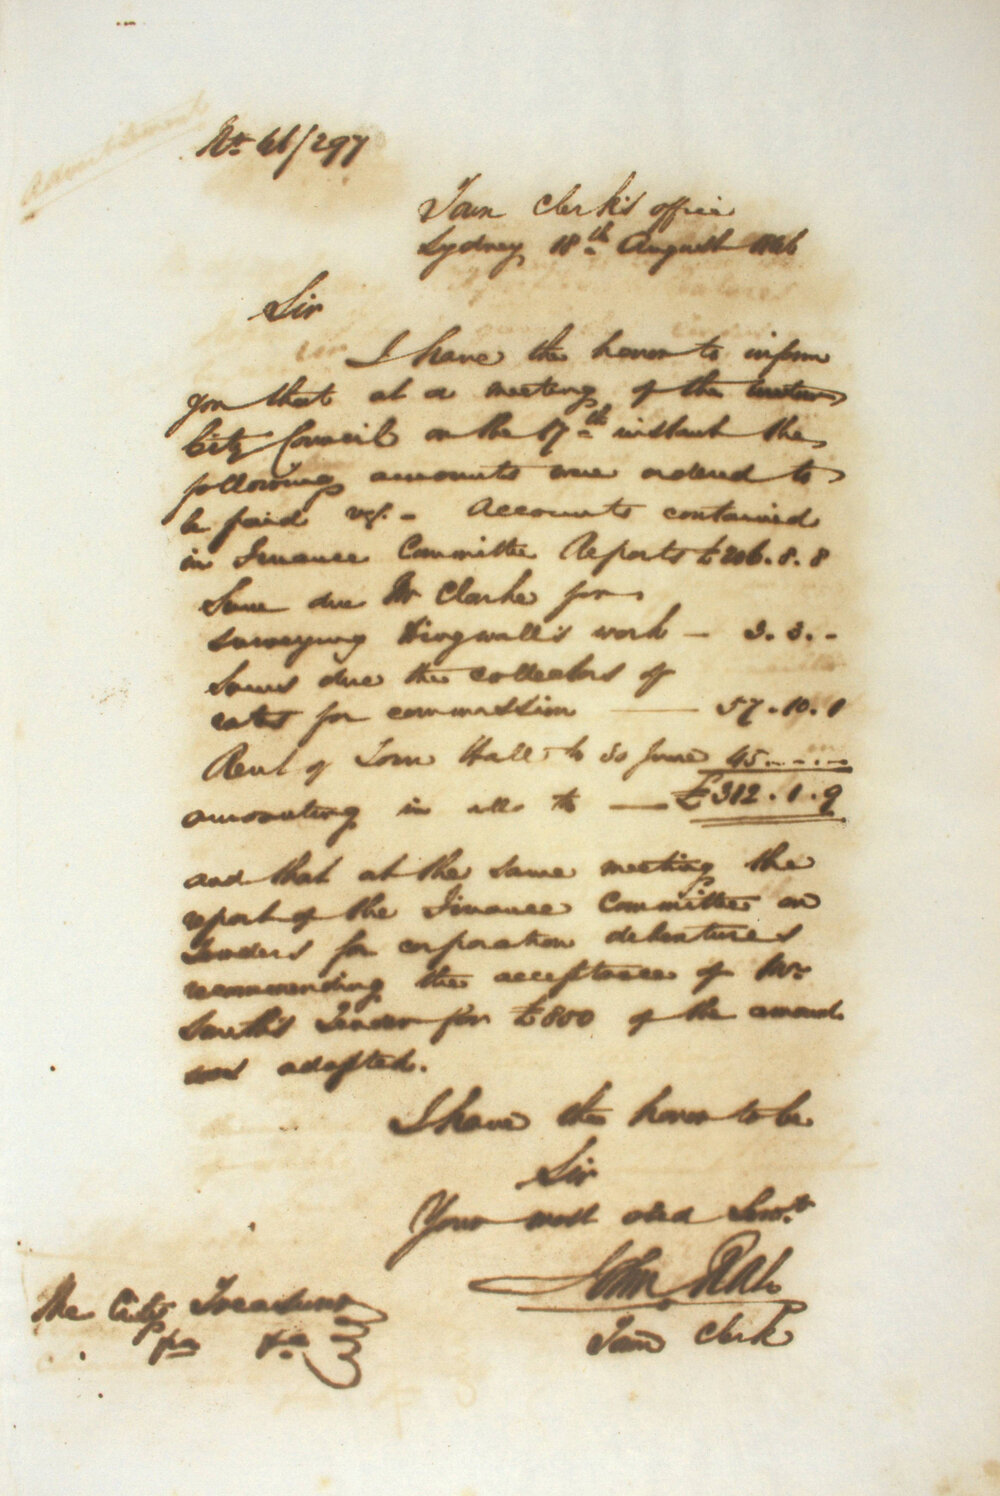 No 46/297
Town Clerk's office
Sydney 18th August 1846
Sir
I have the honor to inform
you that at a meeting of the
City Council on the 17th instant the
following accounts were ordered to
be paid viz. - Accounts contained
in Finance Committee Reports £206.8.8
Sum due Mr Clarke for
surveying Hingwall's work - 3.3.-
Sums due the collectors of
rates for commission — 57.10.1
Rent of Town Hall to 30 June 45.-.-
amounting in all to — £312.1.9
and that at the same meeting the
report of the Finance Committee on
Tenders for corporation debentures
recommending the acceptance of Mr
Smith's Tender for £800 of the amount
was adopted.
I have the honor to be
Sir
Your most obed Servt
John Rae
Town Clerk
The City Treasurer
&c &c